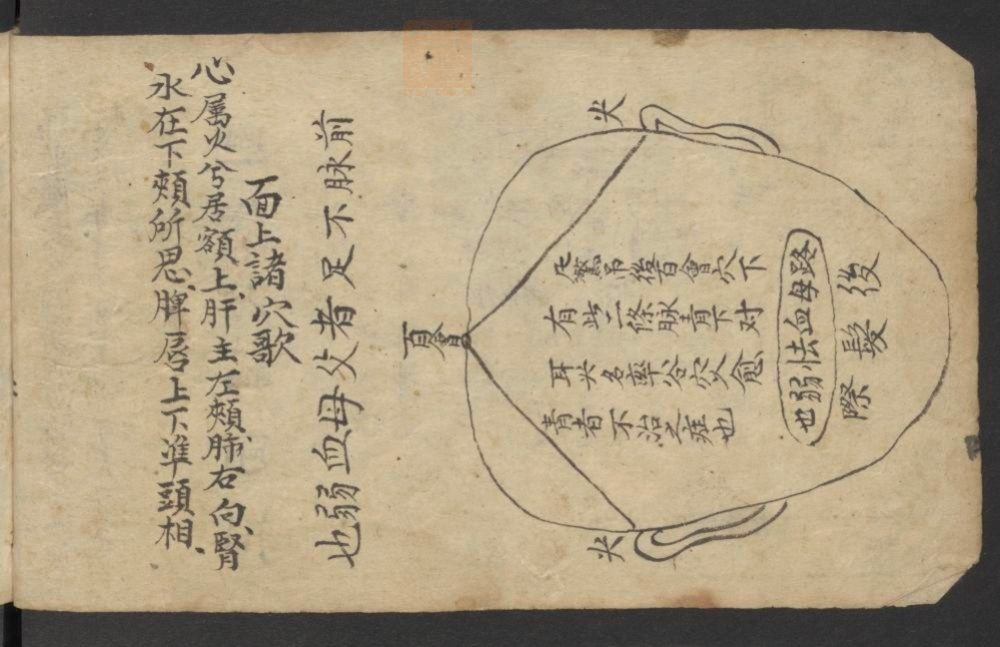 後髮際
路母血怯弱也
凡驚吊後百會穴下
有此二條脉直下对
耳尖名率谷穴愈
青者不治之症也
尖
尖
百會
前脉不足者父母血弱也
面上諸穴歌
心属火兮居額上肝主左頰肺右向腎
水在下頰所思脾唇上下準頭相